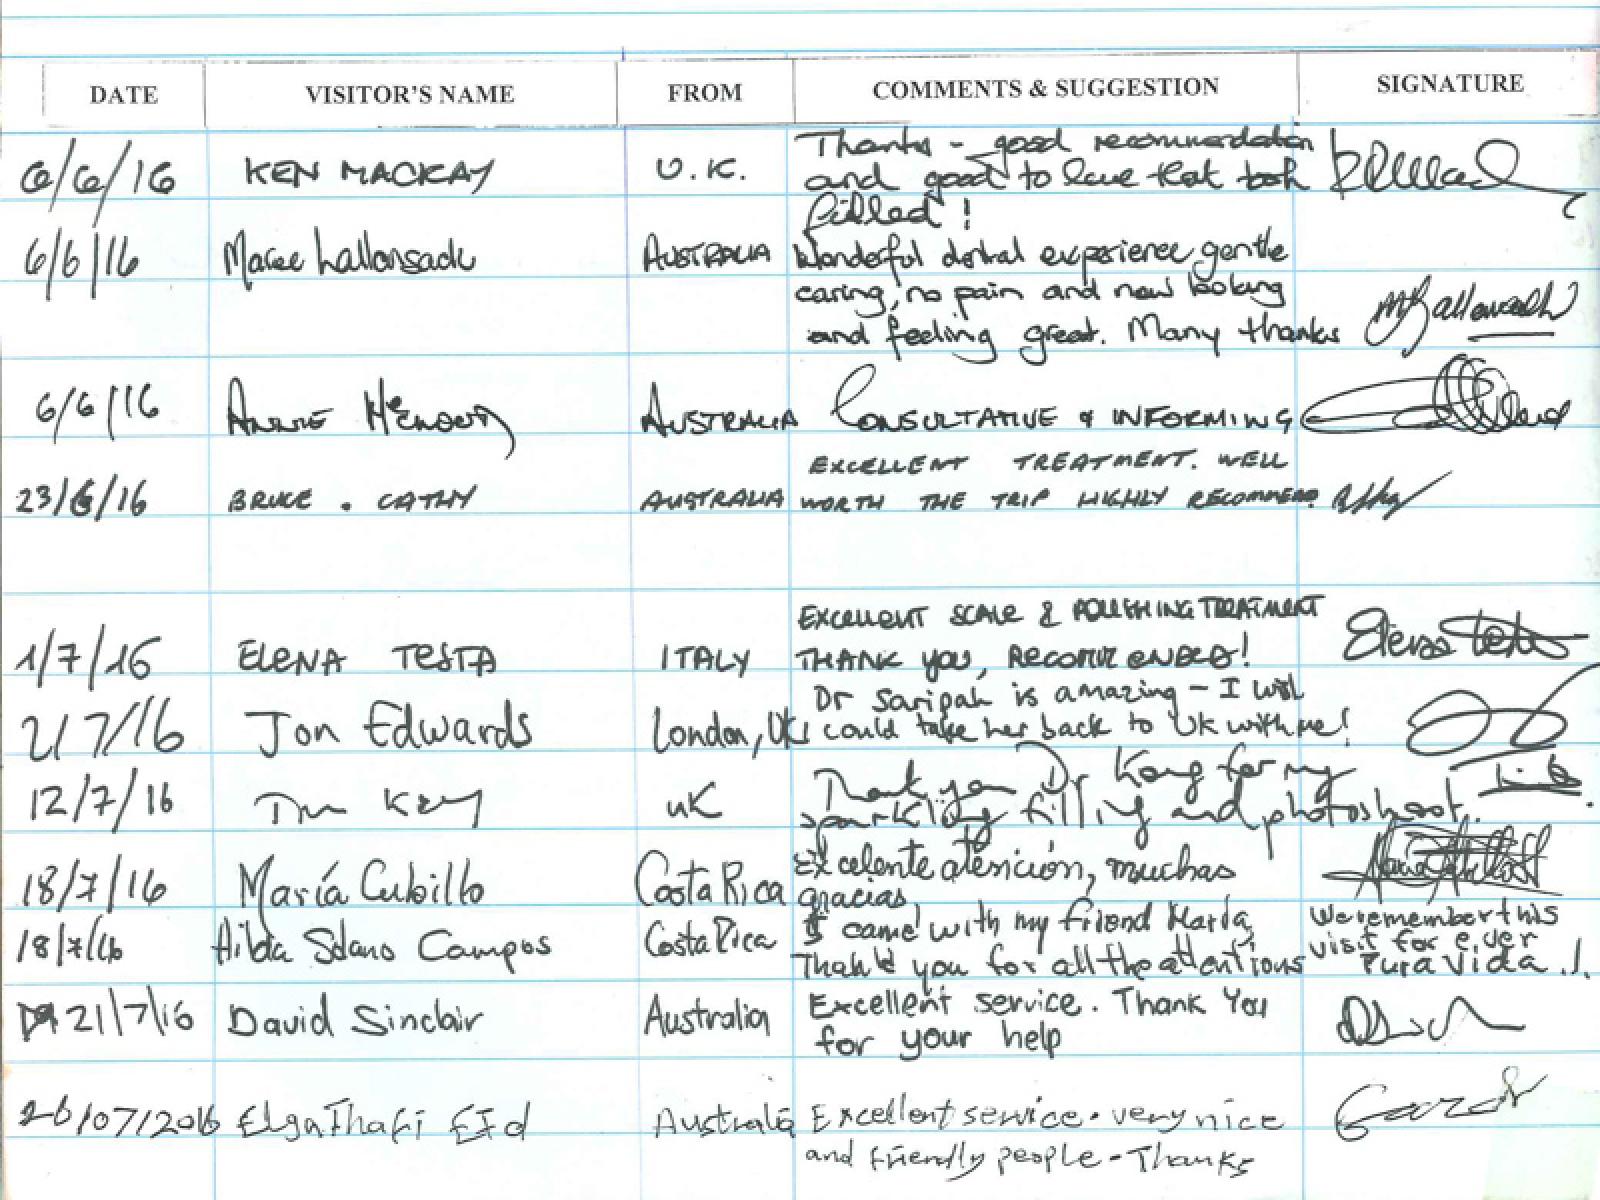 DATE VISITOR'S NAME FROM COMMENTS & SUGGESTION SIGNATURE
6/6/16 KEN MACKAY U.K. Thanks - good recommendation
and good to have that tooth
filled!
6/6/16 AUSTRALIA Wonderful dental experience gentle
caring, no pain and now looking
and feeling great. Many thanks
6/6/16 ANNIE AUSTRALIA CONSULTATIVE & INFORMING
EXCELLENT TREATMENT. WELL
23/6/16 BRUCE . CATHY AUSTRALIA WORTH THE TRIP HIGHLY RECOMMEND.
EXCELLENT SCALE & POLISHING TREATMENT
1/7/16 ELENA TESTA ITALY THANK YOU, RECOMMENDED! Elena Testa
Dr Saripah is amazing - I wish
2/7/16 Jon Edwards London, UK I could take her back to UK with me!
Thank you Dr Kang for my
12/7/16 Tim Key UK sparkling filling and photoshoot.
Excelente atención, muchas
18/7/16 María Cubillo Costa Rica gracias.
I came with my friend María, We remember this
18/7/16 Hilda Solano Campos Costa Rica visit for ever
Thank you for all the attentions Pura Vida!
21/7/16 David Sinclair Australia Excellent service. Thank You
for your help
26/07/2016 Elga Thafi Eid Australia Excellent service. very nice
and friendly people - Thanks